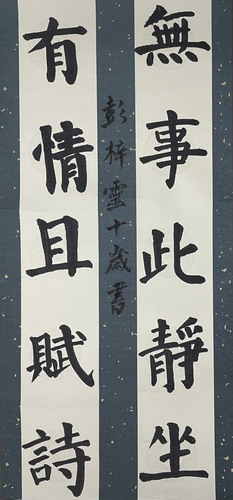 無事此靜坐
有情且賦詩
彭梓靈十歲書